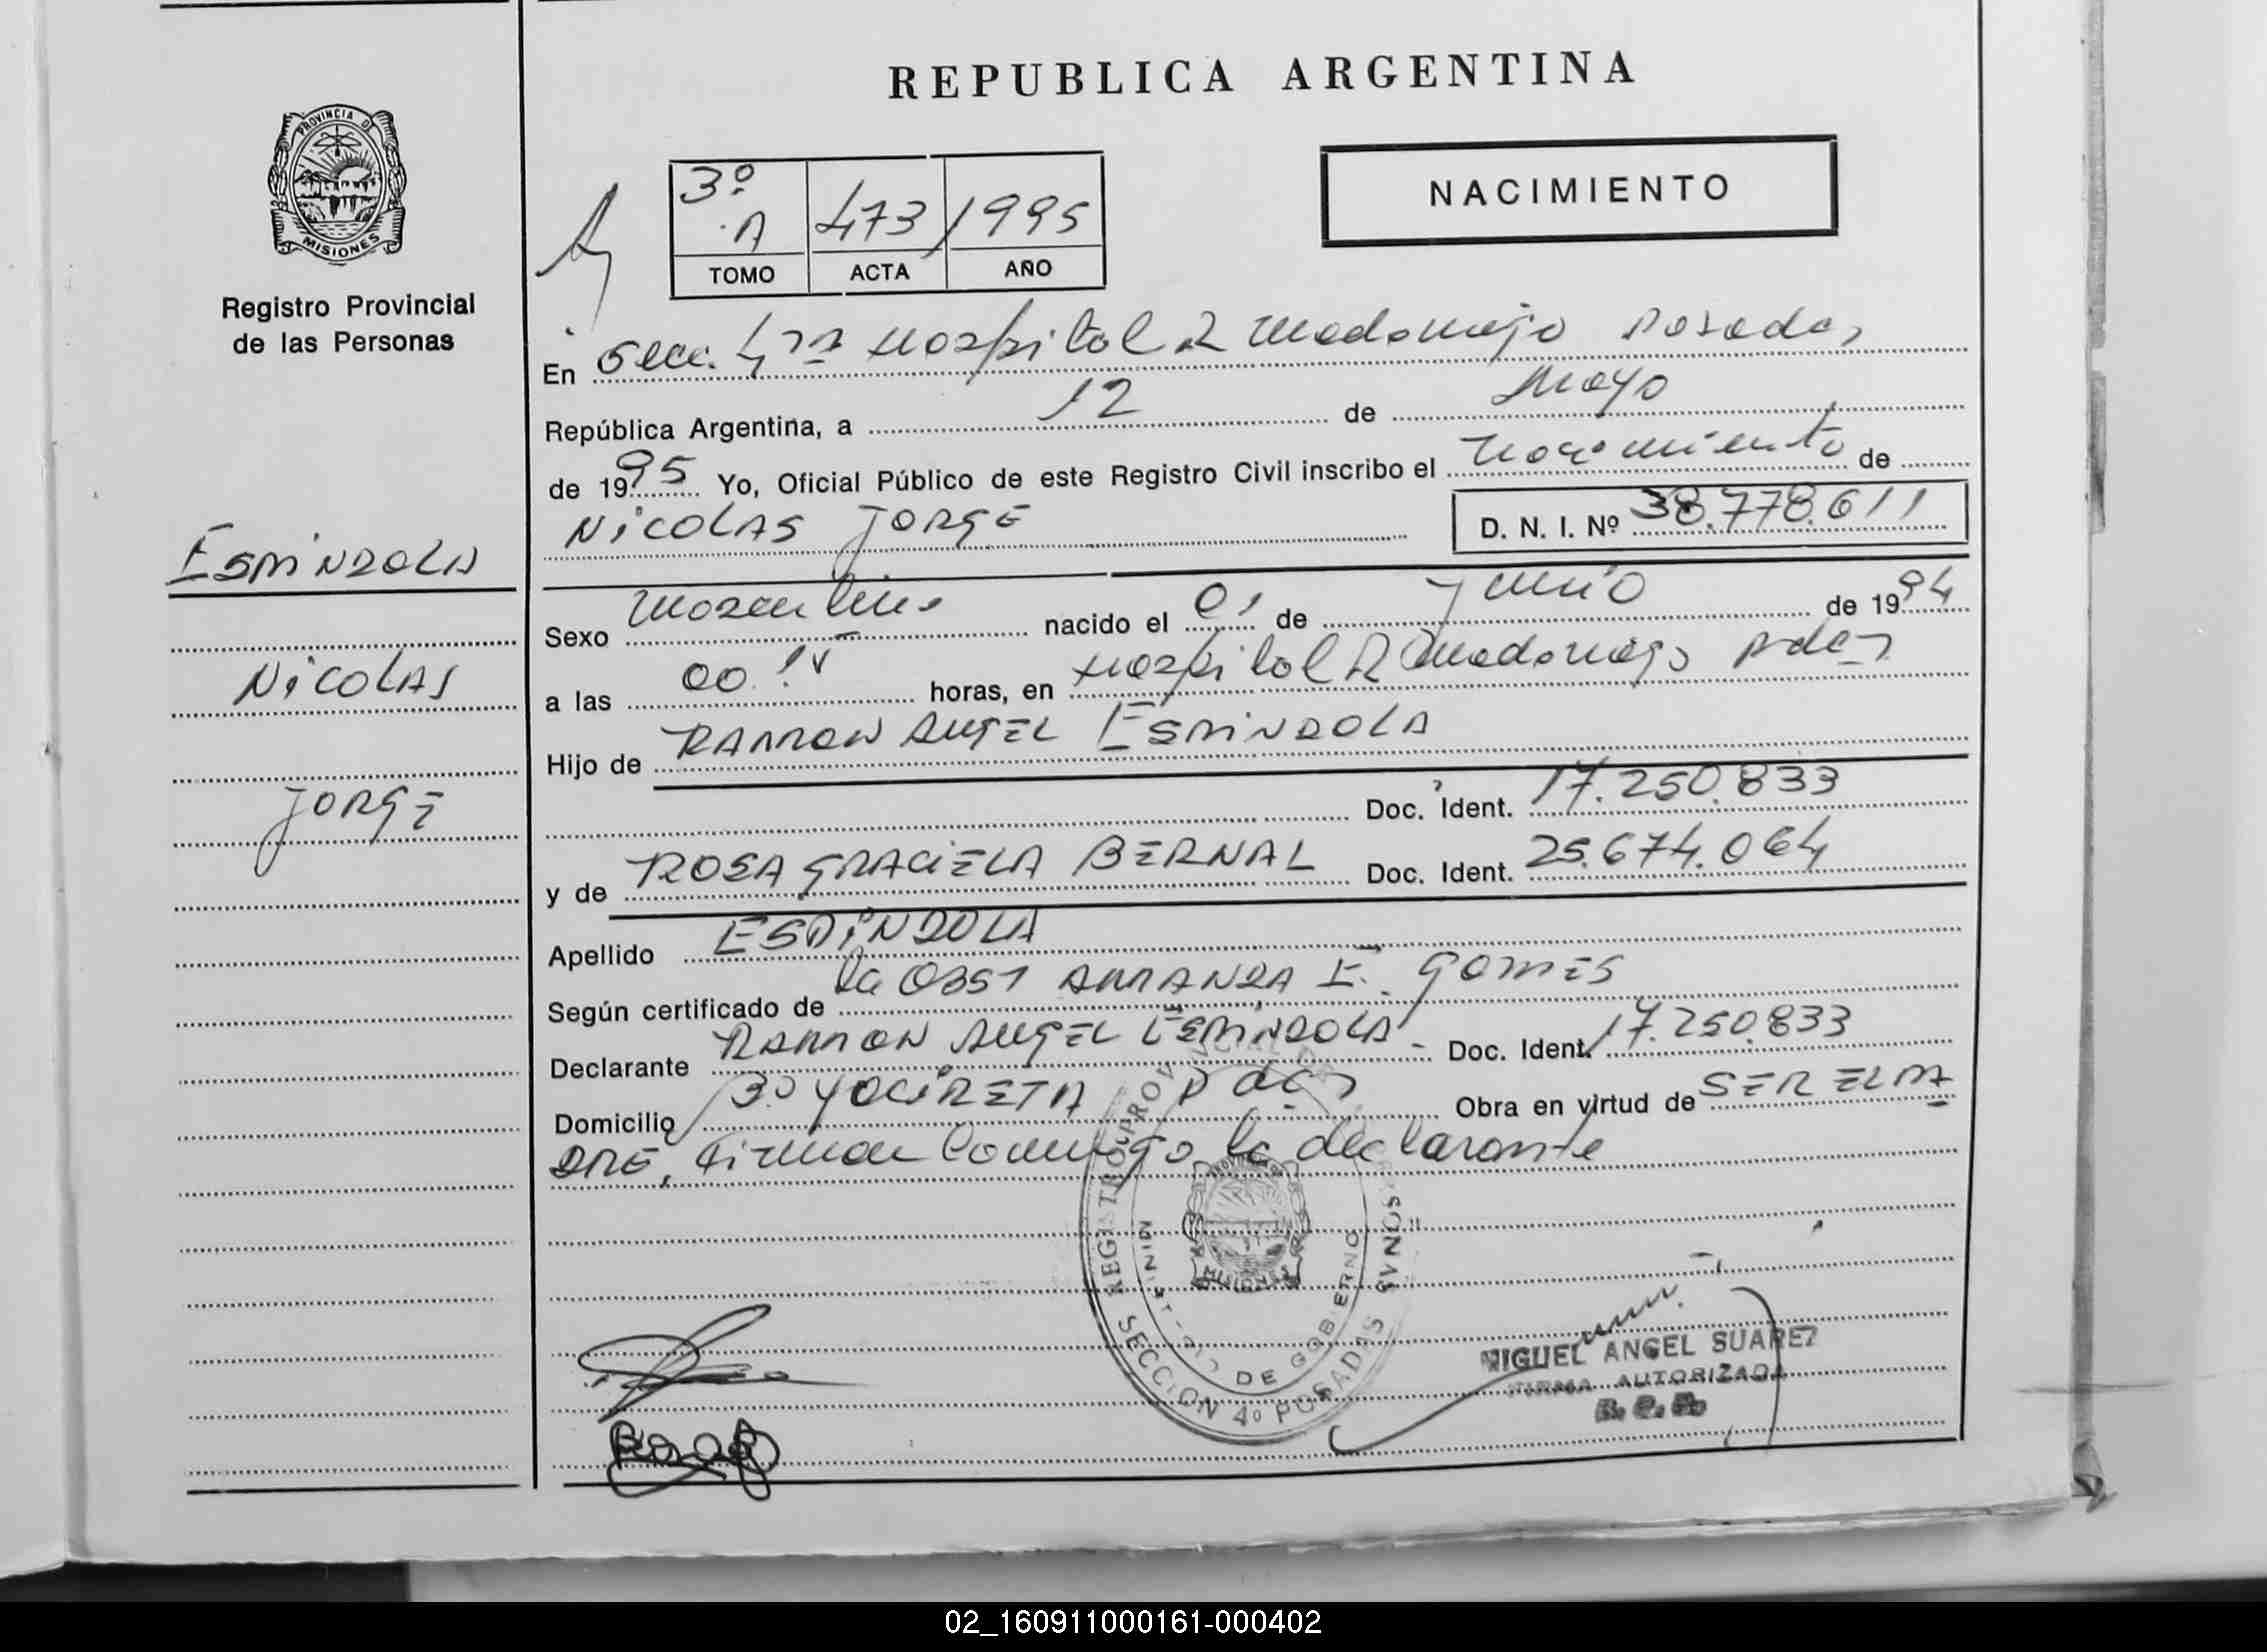 REPUBLICA ARGENTINA
PROVINCIA DE
MISIONES
Registro Provincial
de las Personas
NACIMIENTO
3º A 473 1995
TOMO ACTA AÑO
En Secc. 4ta Hospital R Madariaga Posadas
República Argentina, a 12 de Mayo
de 1995 Yo, Oficial Público de este Registro Civil inscribo el nacimiento de
NICOLAS JORGE D. N. I. Nº 38.778.611
ESPINDOLA
NICOLAS
JORGE
Sexo masculino nacido el 01 de junio de 1994
a las 00 horas, en Hospital R Madariaga Pdas
Hijo de RAMON ANGEL ESPINDOLA
Doc. Ident. 17.250.833
y de ROSA GRACIELA BERNAL Doc. Ident. 25.674.064
Apellido ESPINDOLA
Según certificado de la OBST AMANDA E. GOMES
Declarante RAMON ANGEL ESPINDOLA - Doc. Ident. 17.250.833
Domicilio Bº YACIRETA Pdas Obra en virtud de SER EL PA
DRE, firman conmigo la declarante
REGISTRO PROVINCIAL DE LAS PERSONAS
MINISTERIO DE GOBIERNO
MISIONES
SECCION 4º POSADAS
MIGUEL ANGEL SUAREZ
FIRMA AUTORIZADA
R. P. P.
02_160911000161-000402